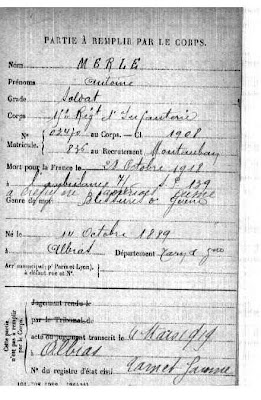 PARTIE À REMPLIR PAR LE CORPS.
Nom MERLE
Prénoms Antoine
Grade Soldat
Corps Régt d'Infanterie
N° 02470 au Corps. — Cl 1908
Matricule. 836 au Recrutement Montauban
Mort pour la France le Octobre 1918
à ambulance
Genre de mort Blessures de Guerre
Né le 14 Octobre 1889
à Albias Département Tarn & Gne
Arr municipal (p' Paris et Lyon),
à défaut rue et N°.
Cette partie n'est pas à remplir par le Corps.
Jugement rendu le
par le Tribunal de
acte ou jugement transcrit le 4 Mars 1919
à Albias
N° du registre d'état civil Tarn et Garonne